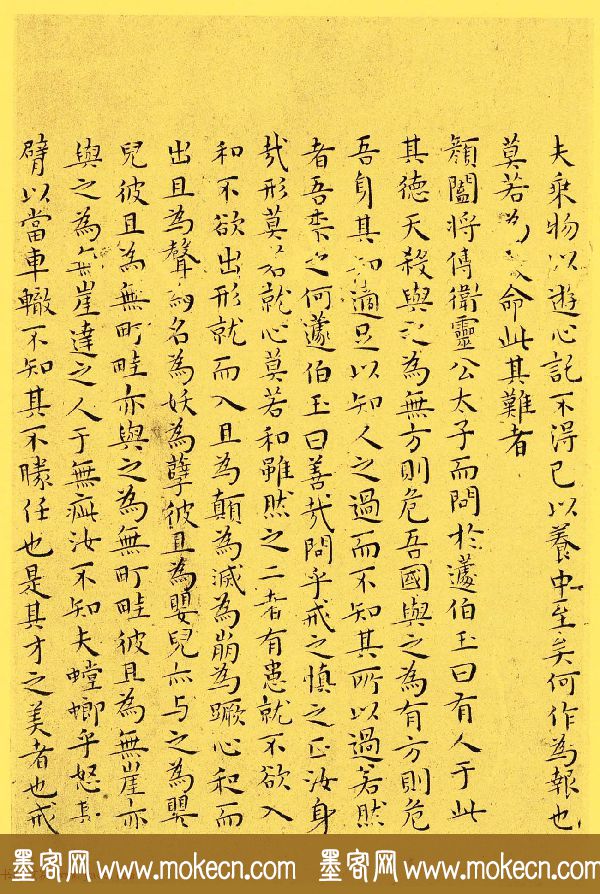 夫乘物以遊心託不得已以養中至矣何作為報也
莫若為致命此其難者
顏闔將傅衛靈公太子而問於蘧伯玉曰有人于此
其德天殺與之為無方則危吾國與之為有方則危
吾身其知適足以知人之過而不知其所以過若然
者吾柰之何蘧伯玉曰善哉問乎戒之慎之正汝身
哉形莫若就心莫若和雖然之二者有患就不欲入
和不欲出形就而入且為顛為滅為崩為蹶心和而
出且為聲為名為妖為孽彼且為嬰兒亦与之為嬰
兒彼且為無町畦亦與之為無町畦彼且為無崖亦
與之為無崖達之人于無疵汝不知夫螳螂乎怒其
臂以當車轍不知其不勝任也是其才之美者也戒
墨客网 www.mokecn.com 墨客网 www.mokecn.com